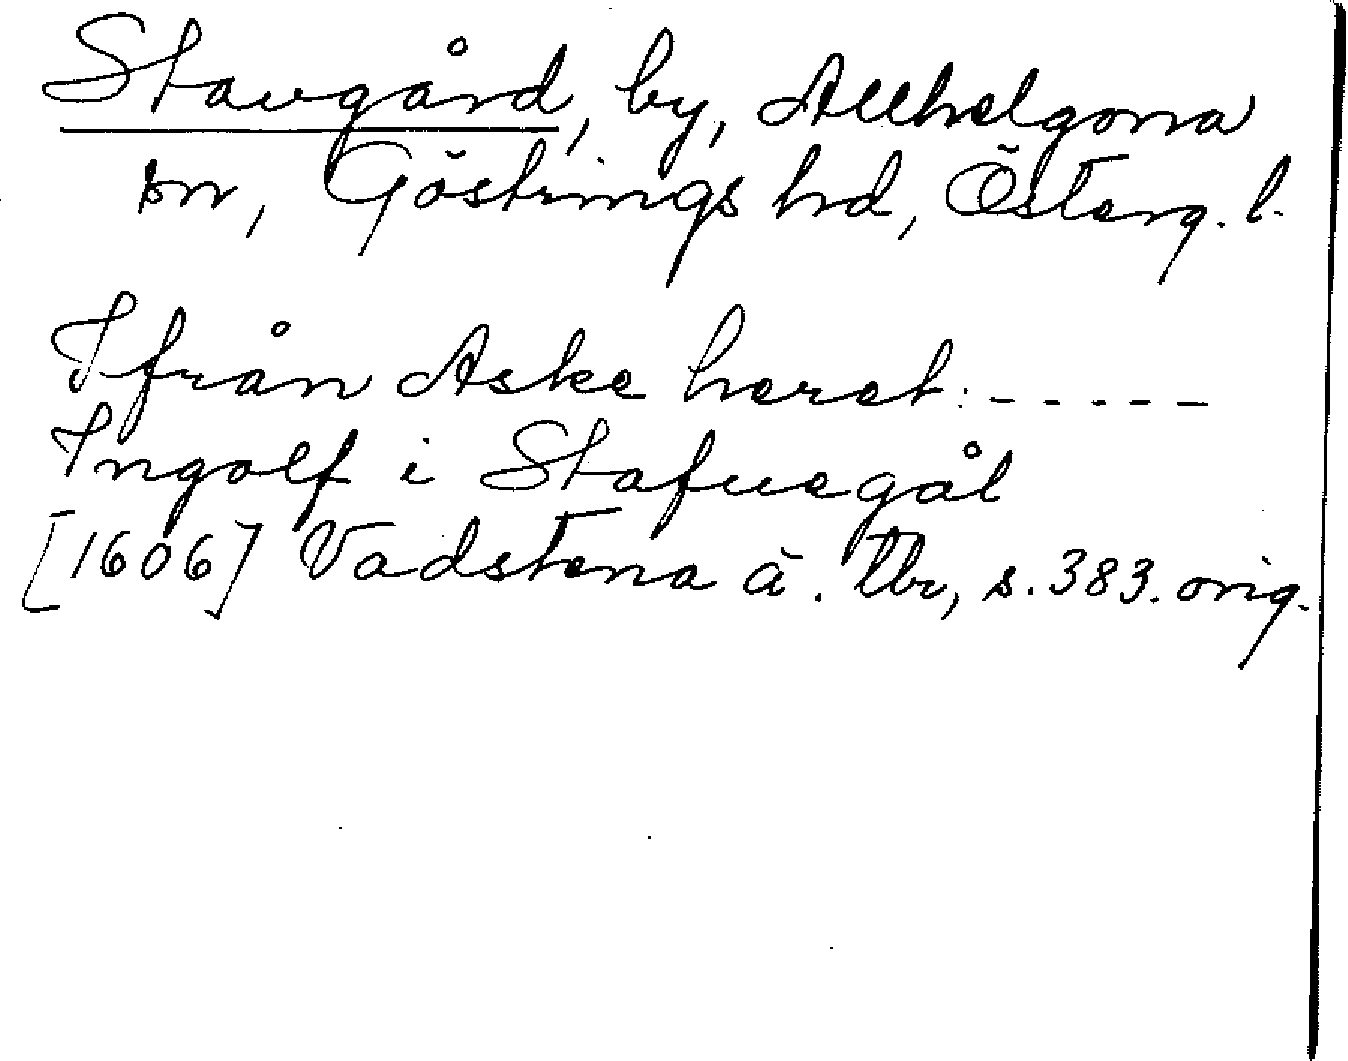 Stavgård, by, Allhelgona
sn, Göstrings hd, Österg. l.
Ifrån Aske heret: - - - - -
Ingolf i Stafuegål
[1606] Vadstena ä. tbr, s. 383. orig.